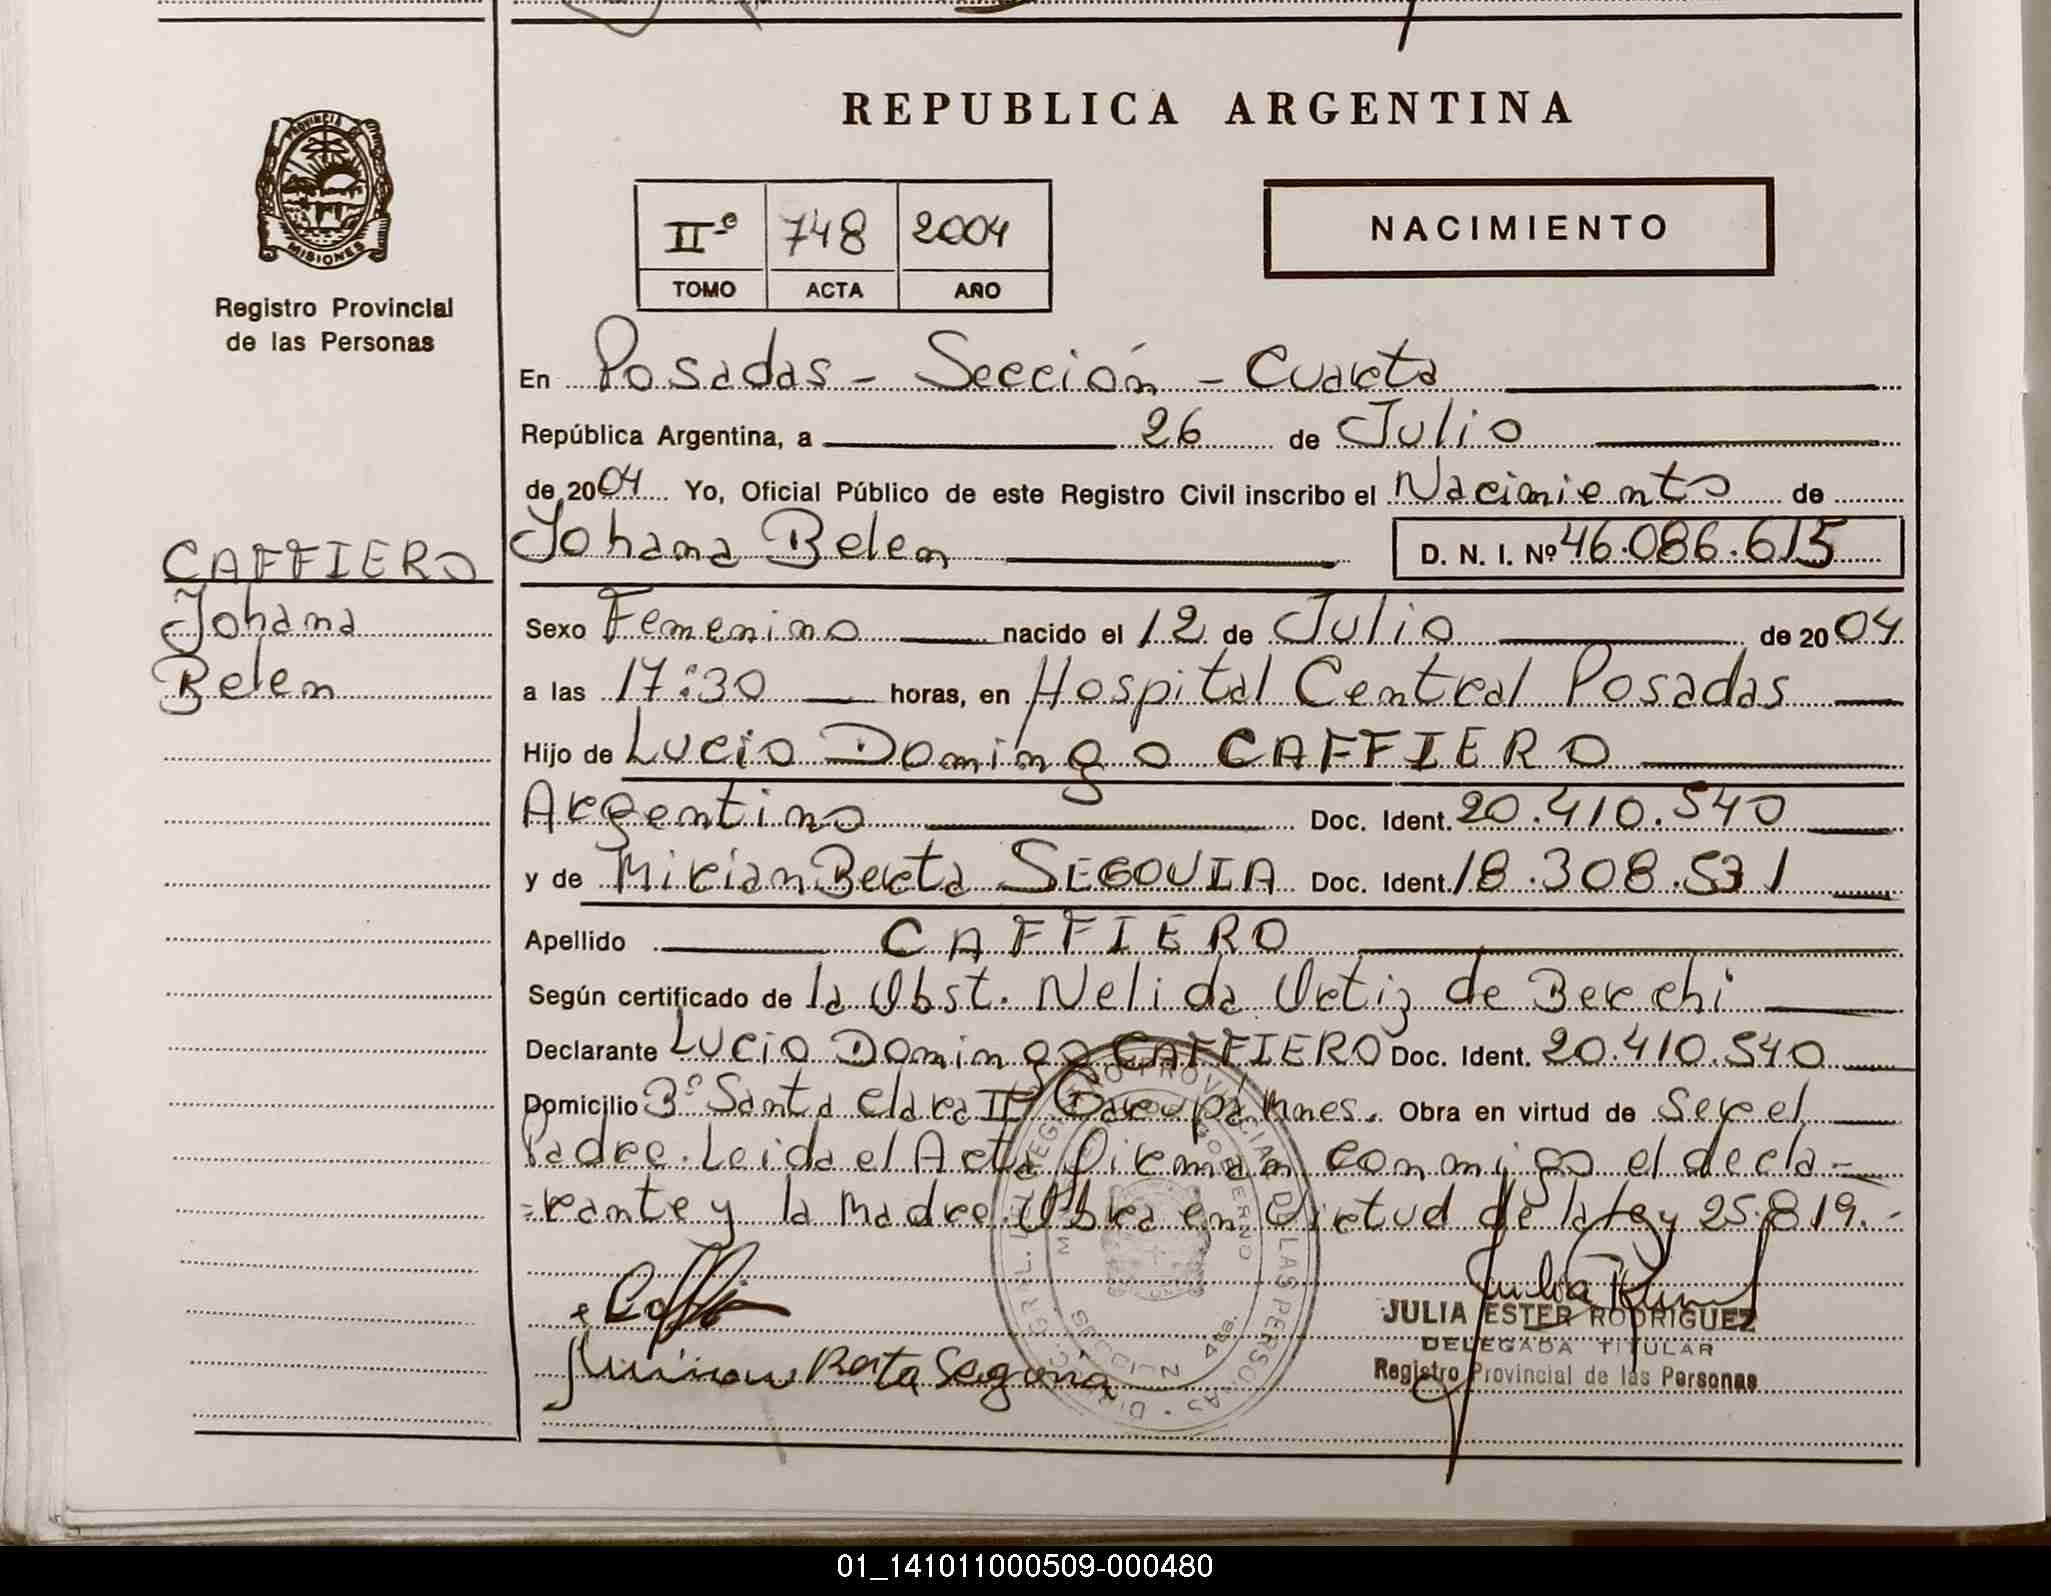 REPUBLICA ARGENTINA
PROVINCIA DE
MISIONES
Registro Provincial
de las Personas
IIº 748 2004
TOMO ACTA AÑO
NACIMIENTO
En Posadas - Sección - Cuarta
República Argentina, a 26 de Julio
de 2004 Yo, Oficial Público de este Registro Civil inscribo el Nacimiento de
Johana Belen D. N. I. Nº 46.086.615
CAFFIERO
Johana
Belen
Sexo Femenino nacido el 12 de Julio de 2004
a las 17:30 horas, en Hospital Central Posadas
Hijo de Lucio Domingo CAFFIERO
Argentino Doc. Ident. 20.410.540
y de Mirian Berta SEGOVIA Doc. Ident. 18.308.531
Apellido CAFFIERO
Según certificado de la Obst. Nelida Ortiz de Berchi
Declarante Lucio Domingo CAFFIERO Doc. Ident. 20.410.540
Domicilio Bº Santa Clara II Garupá Mnes. Obra en virtud de Ser el
Padre. Leida el Acta Firman conmigo el decla-
=rante y la Madre. Obra en Virtud de la ley 25.819.-
Mirian Berta Segovia
JULIA ESTER RODRIGUEZ
DELEGADA TITULAR
Registro Provincial de las Personas
01_141011000509-000480